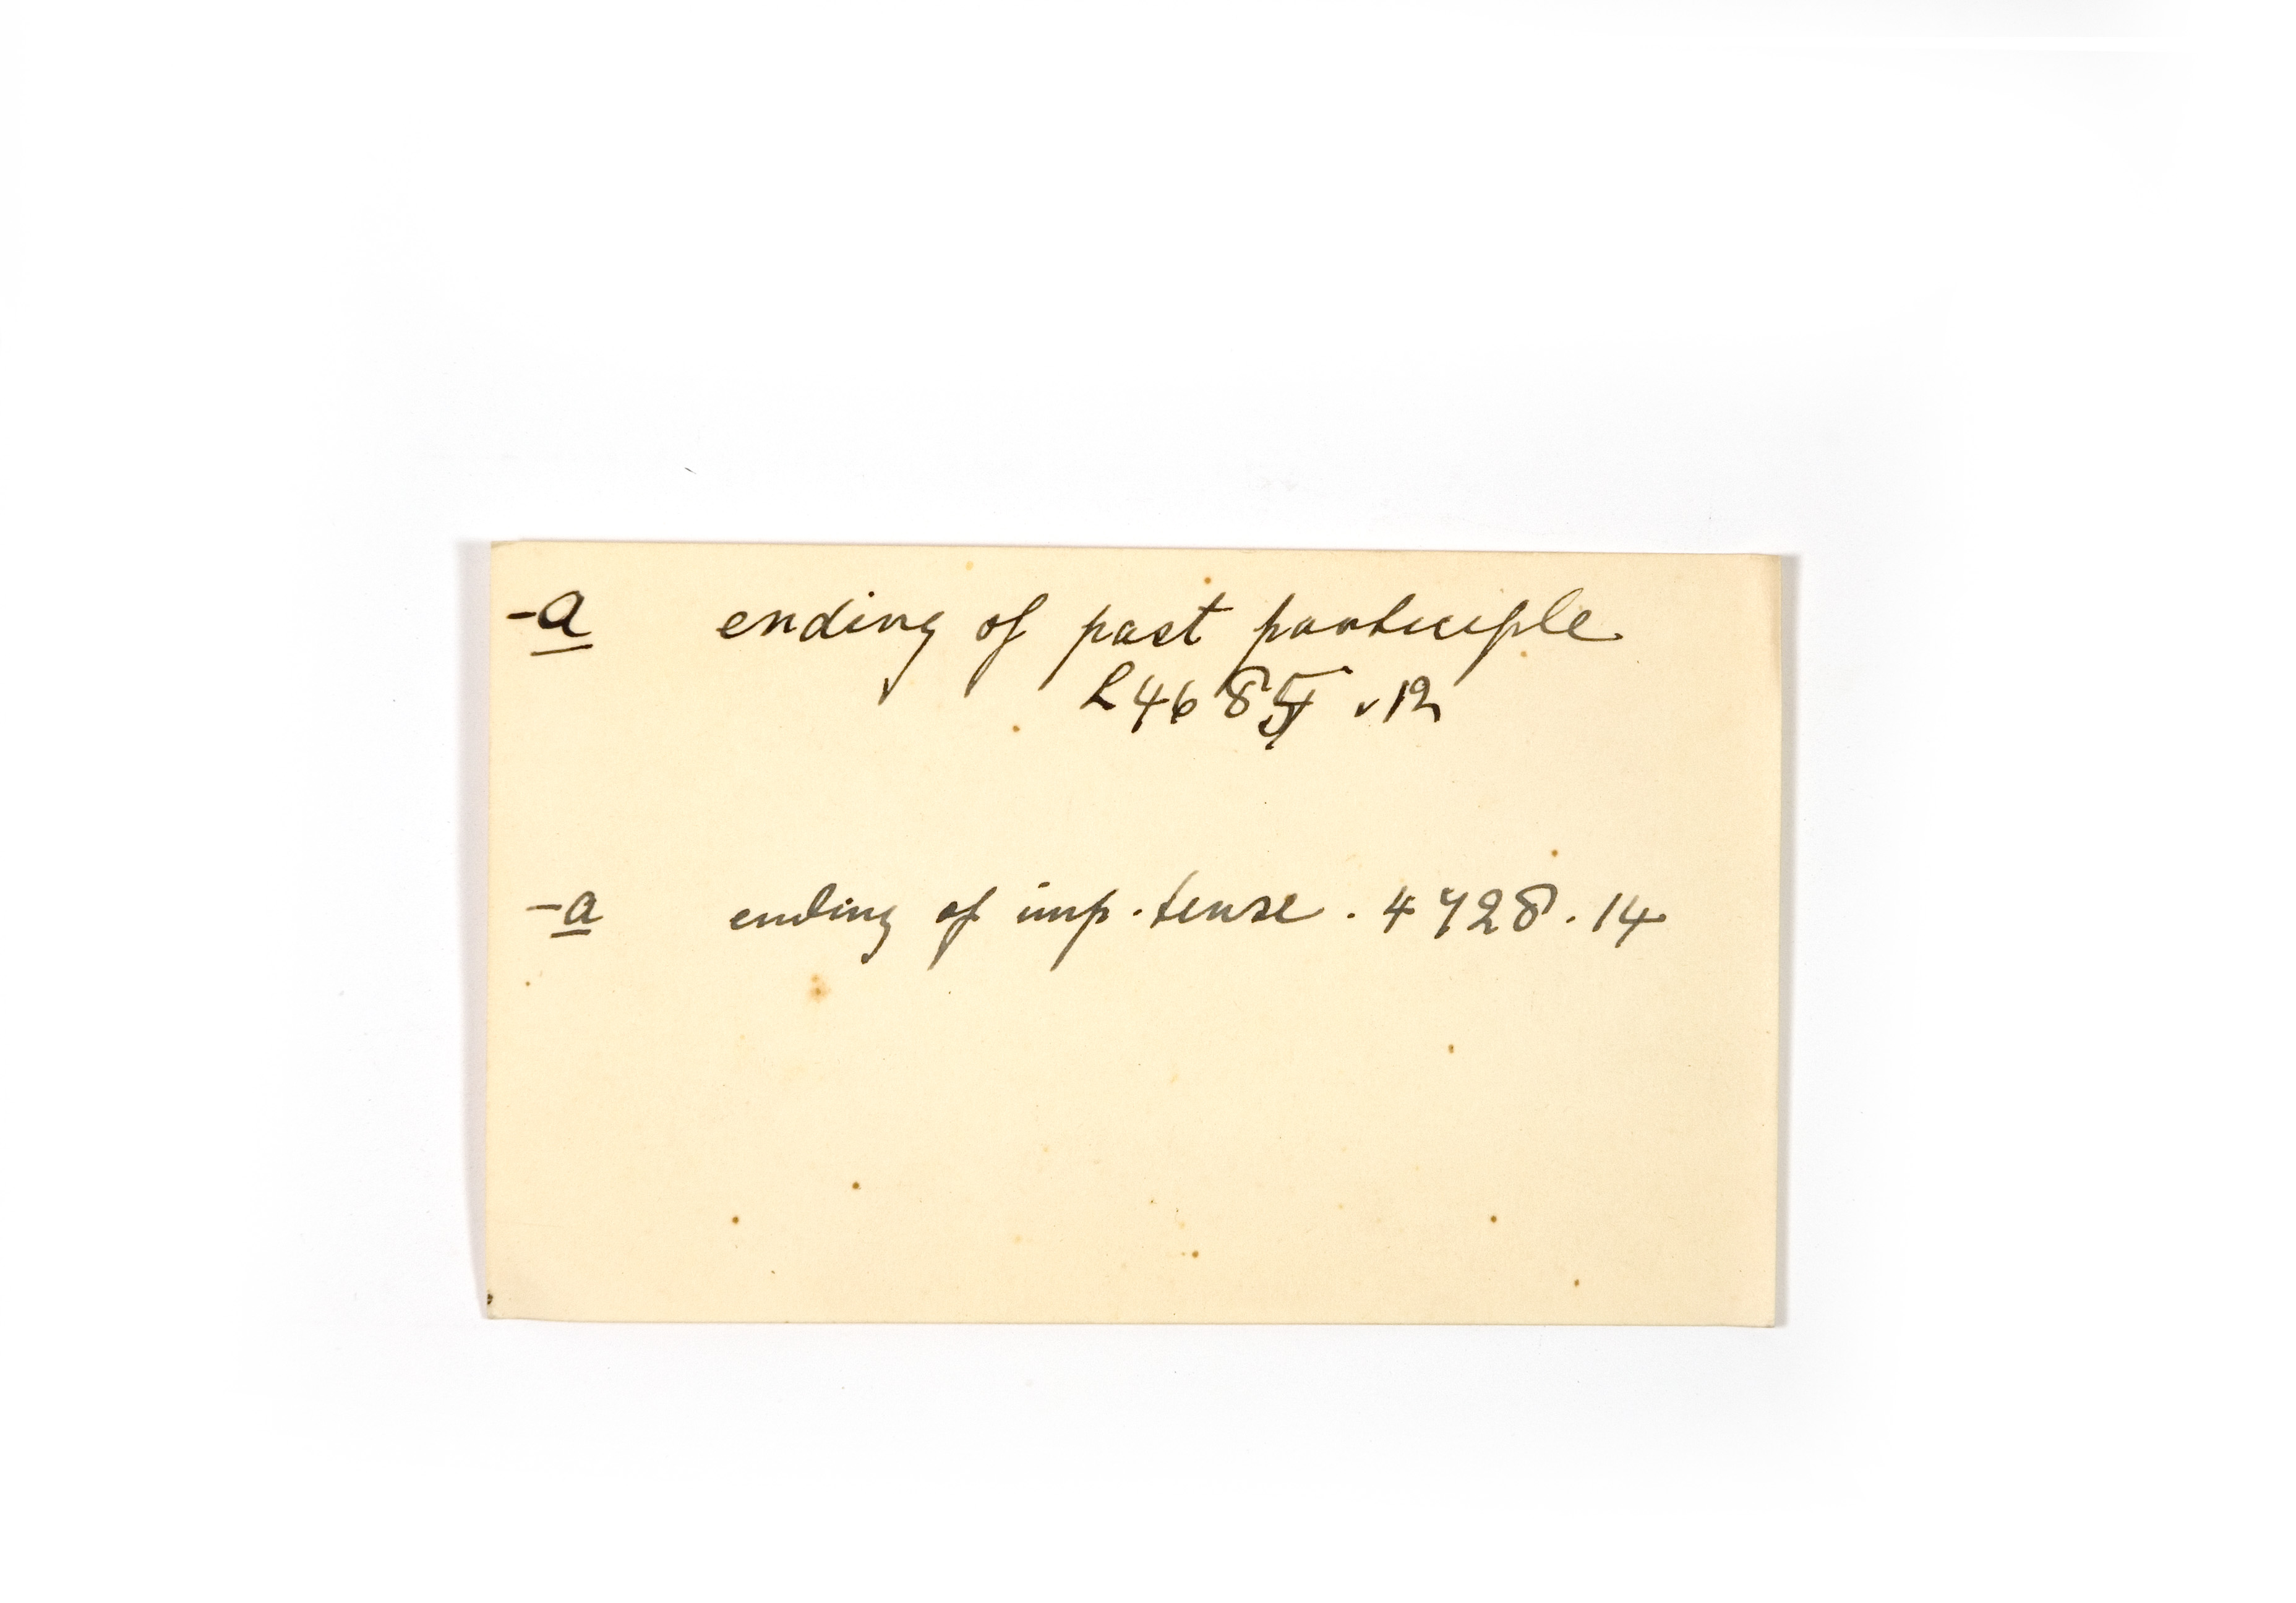 -a ending of past participle
L4685 . 12
-a ending of imp. tense . 4728 . 14